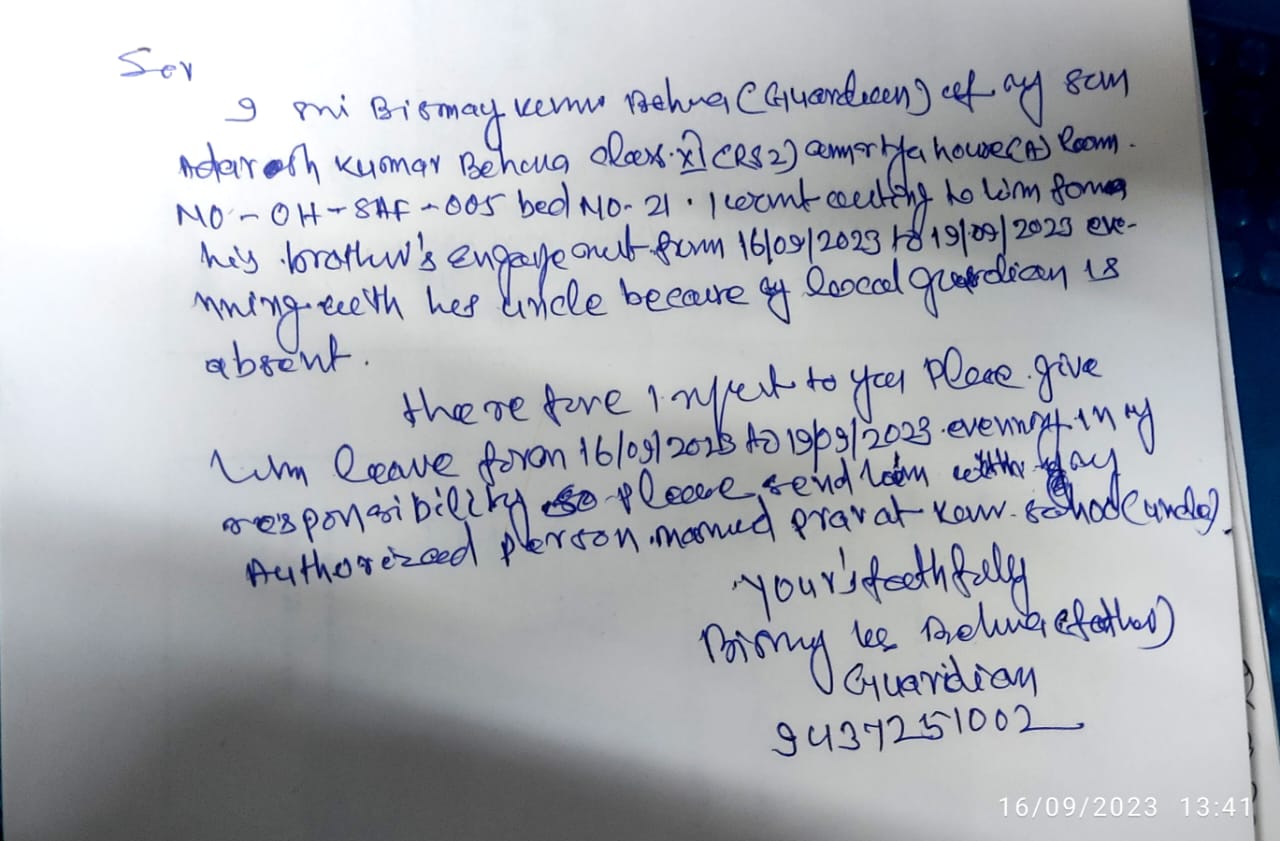 Ser
I sri Bismay Kumar Behura (Guardian) of my son
Adarsh Kumar Behera class. XI (RS2) amartya house(A) Room.
NO - OH - SAF - 005 bed NO- 21. I want to him
his brother's engagement from 16/09/2023 to 19/09/2023 eve-
nning with his uncle because my local guardian is
absent.
therefore I to you Please give
him leave from 16/09/2023 to 19/09/2023 evenning in my
responsibility so please send him with my
Authorized person named pravat Kumar (uncle)
your's feethfully
Bismay Behura (father)
Guardian
9437251002
16/09/2023 13:41